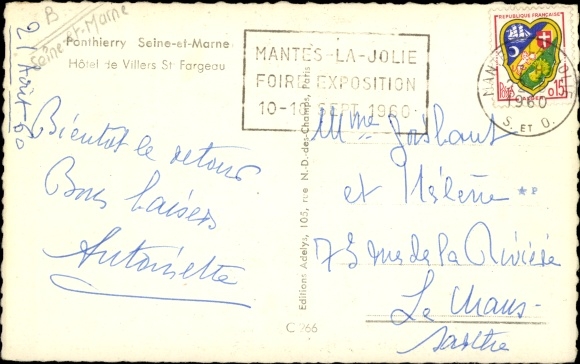 B
Seine-et-Marne
21 Août-60
Ponthierry Seine-et-Marne
Hôtel de Villers St Fargeau
MANTES-LA-JOLIE
FOIRE EXPOSITION
10-18 SEPT 1960
REPUBLIQUE FRANÇAISE
0,15
POSTES
ALGER
MANTES
1960
S. ET O.
Bientôt le retour
Bons baisers
Antoinette
Editions Adelys, 105, rue N.-D.-des-Champs, Paris
C 266
Mme
et Hélène
* P
73 rue de la Rivière
Le Mans-
Sarthe